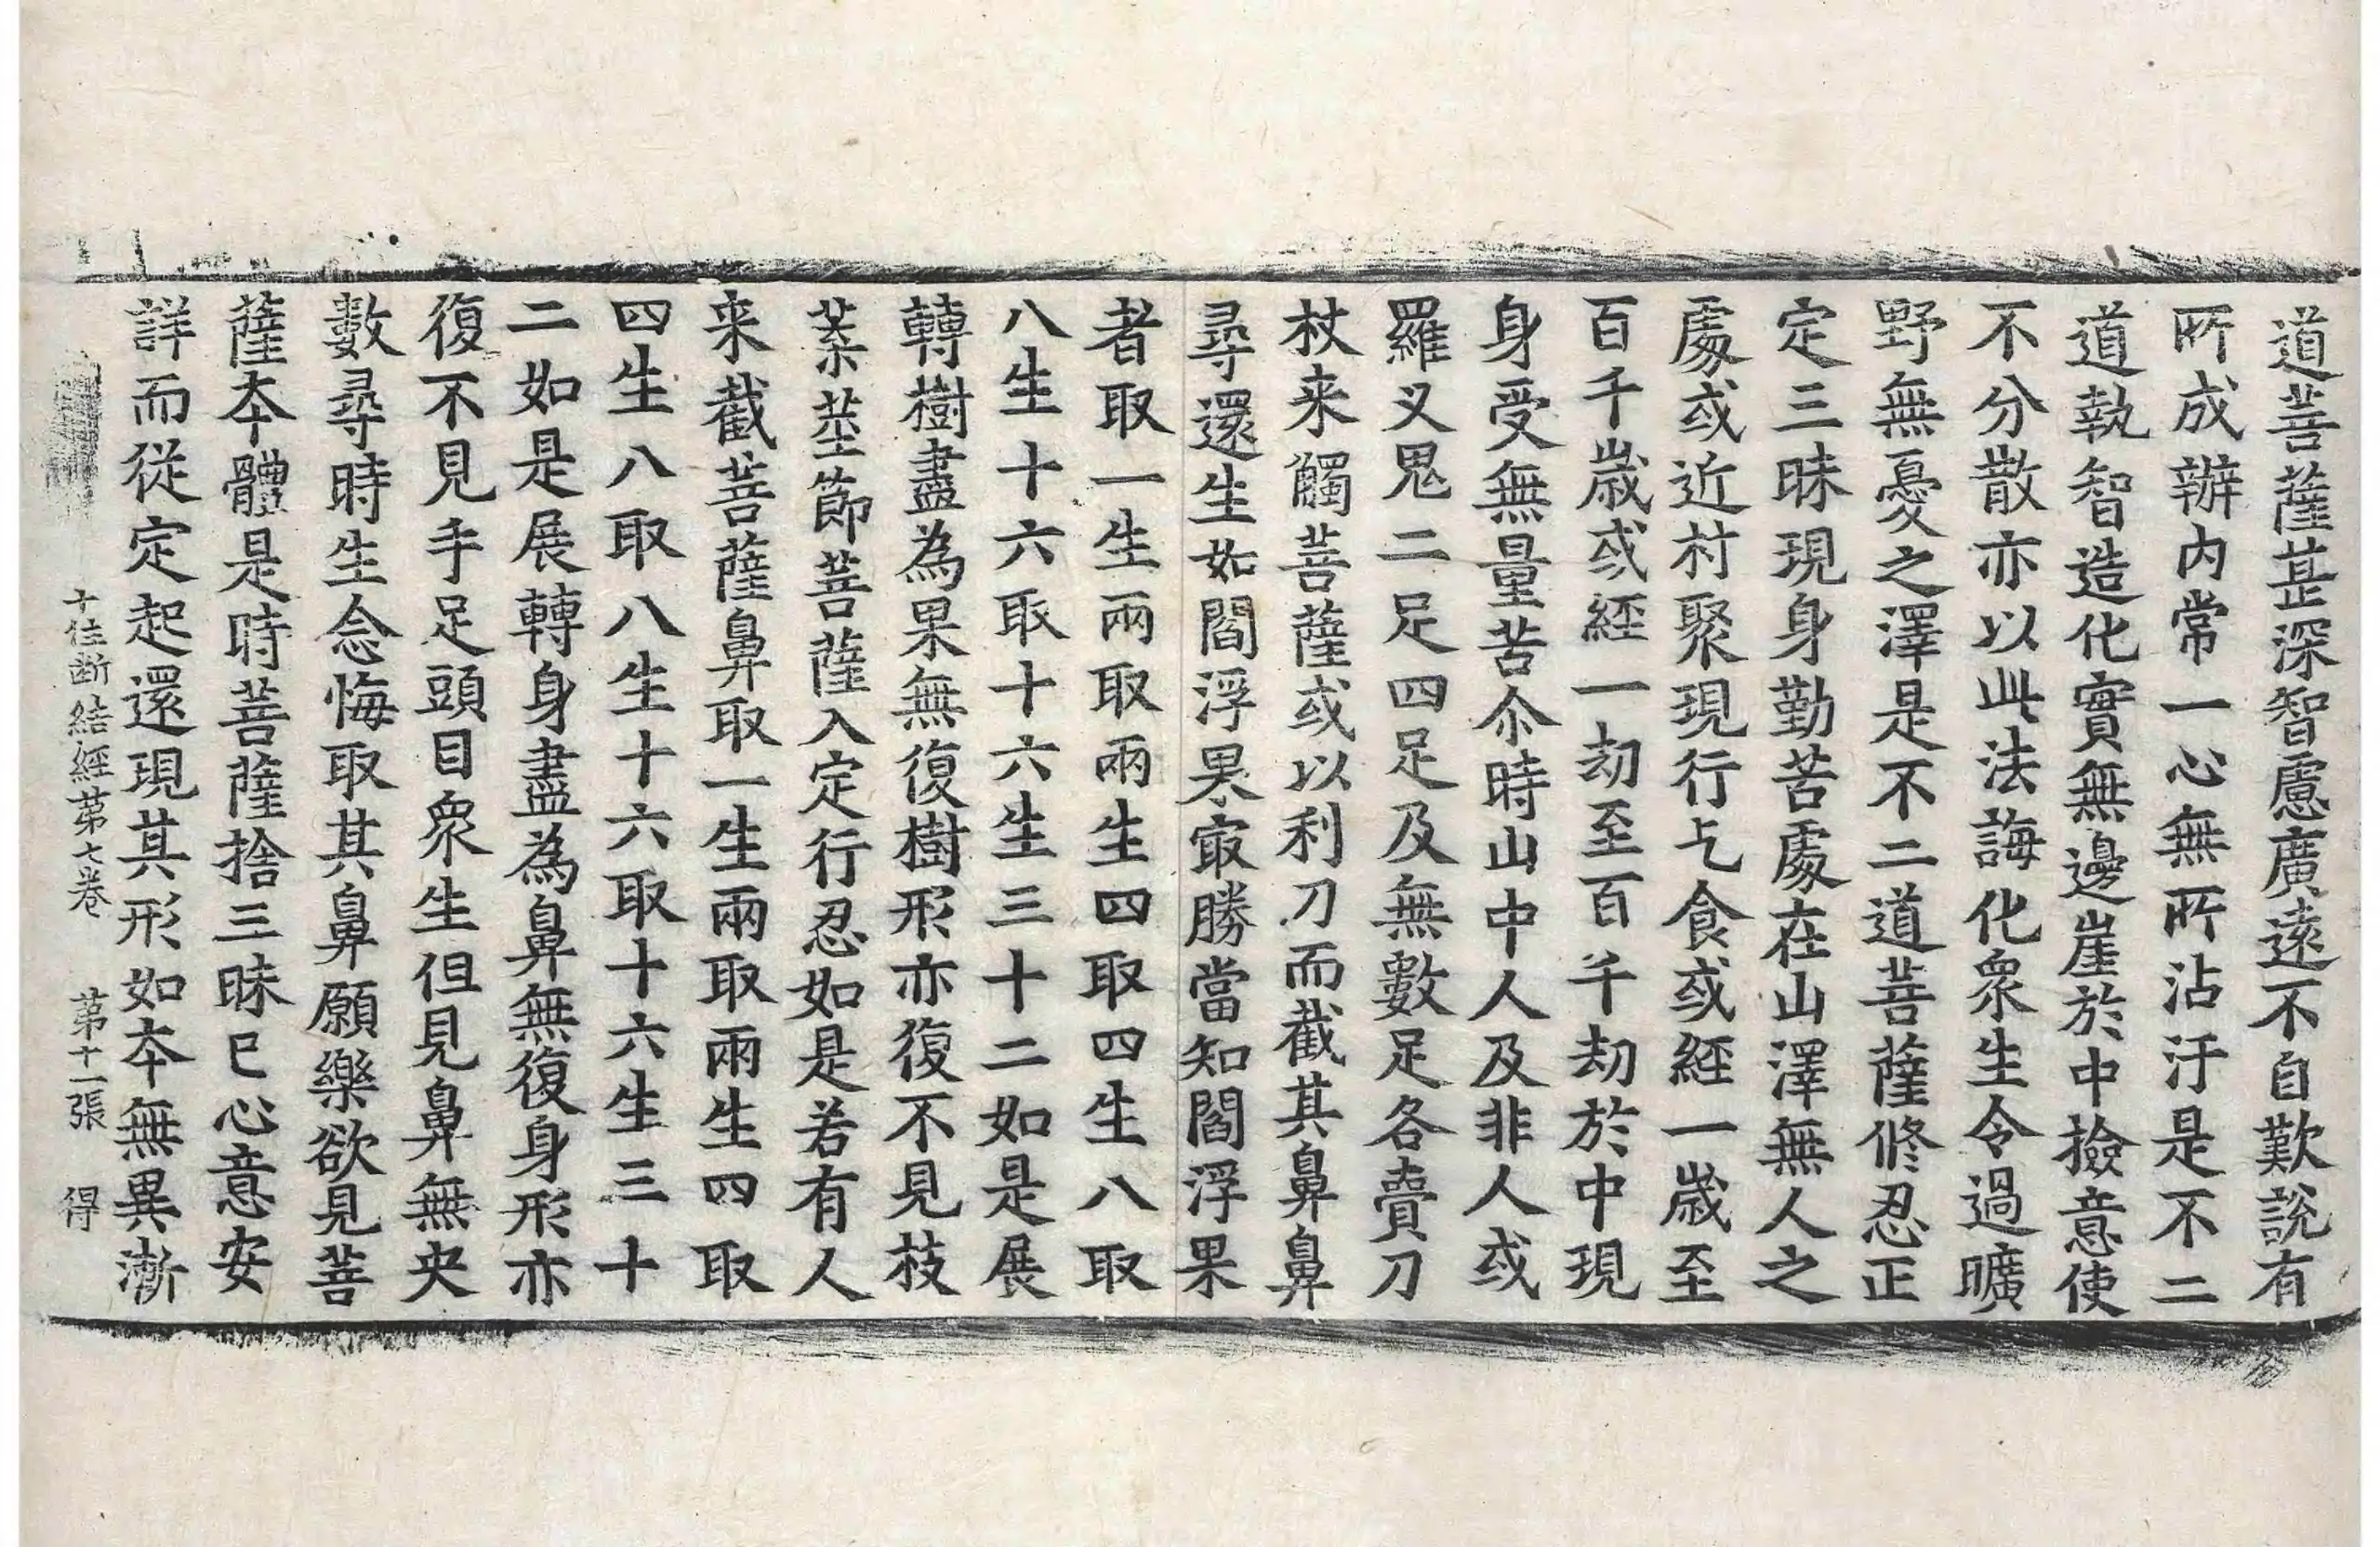 道菩薩甚深智慮廣遠不自歎說有
所成辦內常一心無所沾汙是不二
道執智造化實無邊崖於中撿意使
不分散亦以此法誨化衆生令過曠
野無憂之澤是不二道菩薩修忍正
定三昧現身勤苦處在山澤無人之
處或近村聚現行乞食或經一歲至
百千歲或經一劫至百千劫於中現
身受無量苦尒時山中人及非人或
羅叉鬼二足四足及無數足各賣刀
杖来觸菩薩或以利刀而截其鼻鼻
尋還生如閻浮果最勝當知閻浮果
者取一生兩取兩生四取四生八取
八生十六取十六生三十二如是展
轉樹盡為果無復樹形亦復不見枝
葉莖節菩薩入定行忍如是若有人
来截菩薩鼻取一生兩取兩生四取
四生八取八生十六取十六生三十
二如是展轉身盡為鼻無復身形亦
復不見手足頭目衆生但見鼻無央
數尋時生念悔取其鼻願樂欲見菩
薩本體是時菩薩捨三昧已心意安
詳而從定起還現其形如本無異漸
十住断結經苐七卷 苐十一張 得